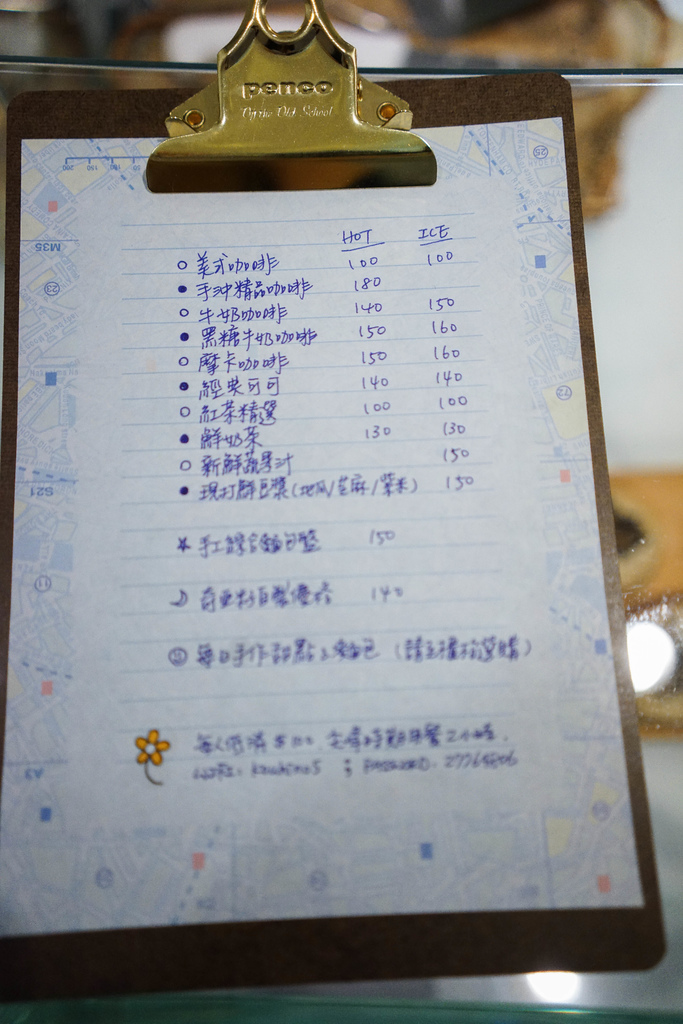 penco
On the Old School
200 150 100 50
HOT ICE
美式咖啡 100 100
手沖精品咖啡 180
牛奶咖啡 140 150
黑糖牛奶咖啡 150 160
摩卡咖啡 150 160
經典可可 140 140
紅茶精選 100 100
鮮奶茶 130 130
新鮮蔬果汁 150
現打鮮豆漿(地瓜/芝麻/紫米) 150
手工綜合麵包盤 150
奇亞籽自製優格 140
每日手作甜點&麵包 (請至櫃檯選購)
每人低消
M35
S21
A3
25
23
72
11